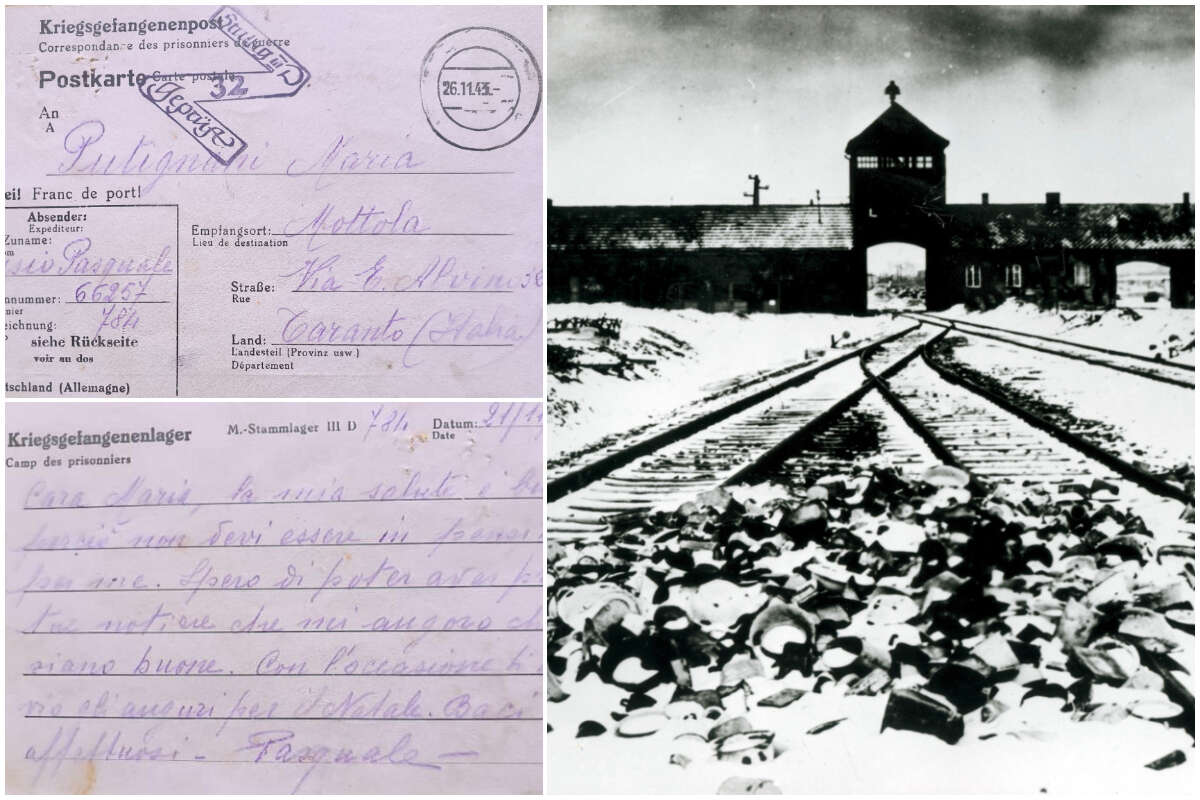 Kriegsgefangenenpost
Correspondance des prisonniers de guerre
Postkarte Carte postale
Stalag III D
32
Geprüft
26.11.43.-
An
A
Putignani Maria
ei! Franc de port!
Absender:
Expéditeur:
Zuname:
om
esio Pasquale
nnummer: 66257
nier
eichnung: 784
siehe Rückseite
voir au dos
tschland (Allemagne)
Empfangsort: Mottola
Lieu de destination
Straße: Via E. Alvino 32
Rue
Land: Taranto (Italia)
Landesteil (Provinz usw.)
Département
Kriegsgefangenenlager
Camp des prisonniers
M.-Stammlager III D 784
Datum: 21/11
Date
Cara Maria, la mia salute è bu
perciò non devi essere in pensi
per me. Spero di poter aver p
tue notizie che mi auguro ch
siano buone. Con l'occasione ti
vio gli auguri per il Natale. Baci
affettuosi - Pasquale -